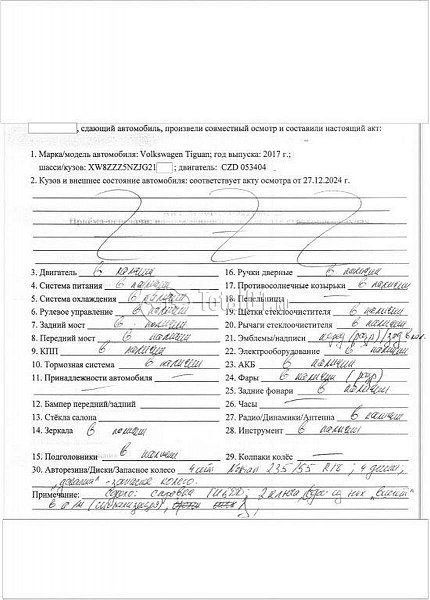 , сдающий автомобиль, произвели совместный осмотр и составили настоящий акт:
1. Марка/модель автомобиля: Volkswagen Tiguan; год выпуска: 2017 г.;
шасси/кузов: XW8ZZZ5NZJG21 ; двигатель: CZD 053404 .
2. Кузов и внешнее состояние автомобиля: соответствует акту осмотра от 27.12.2024 г.
3. Двигатель в наличии
4. Система питания в наличии
5. Система охлаждения в наличии
6. Рулевое управление в наличии
7. Задний мост в наличии
8. Передний мост в наличии
9. КПП в наличии
10. Тормозная система в наличии
11. Принадлежности автомобиля —
12. Бампер передний/задний
13. Стёкла салона
14. Зеркала в наличии
15. Подголовники в наличии
16. Ручки дверные в наличии
17. Противосолнечные козырьки в наличии
18. Пепельницы —
19. Щетки стеклоочистителя в наличии
20. Рычаги стеклоочистителя в наличии
21. Эмблемы/надписи
22. Электрооборудование в наличии
23. АКБ в наличии
24. Фары в наличии
25. Задние фонари в наличии
26. Часы —
27. Радио/Динамики/Антенна в наличии
28. Инструмент в наличии
29. Колпаки колёс —
30. Авторезина/Диски/Запасное колесо 4 шт Nokian 235/55 R18; 4 диска,
- запасное колесо.
Примечание: